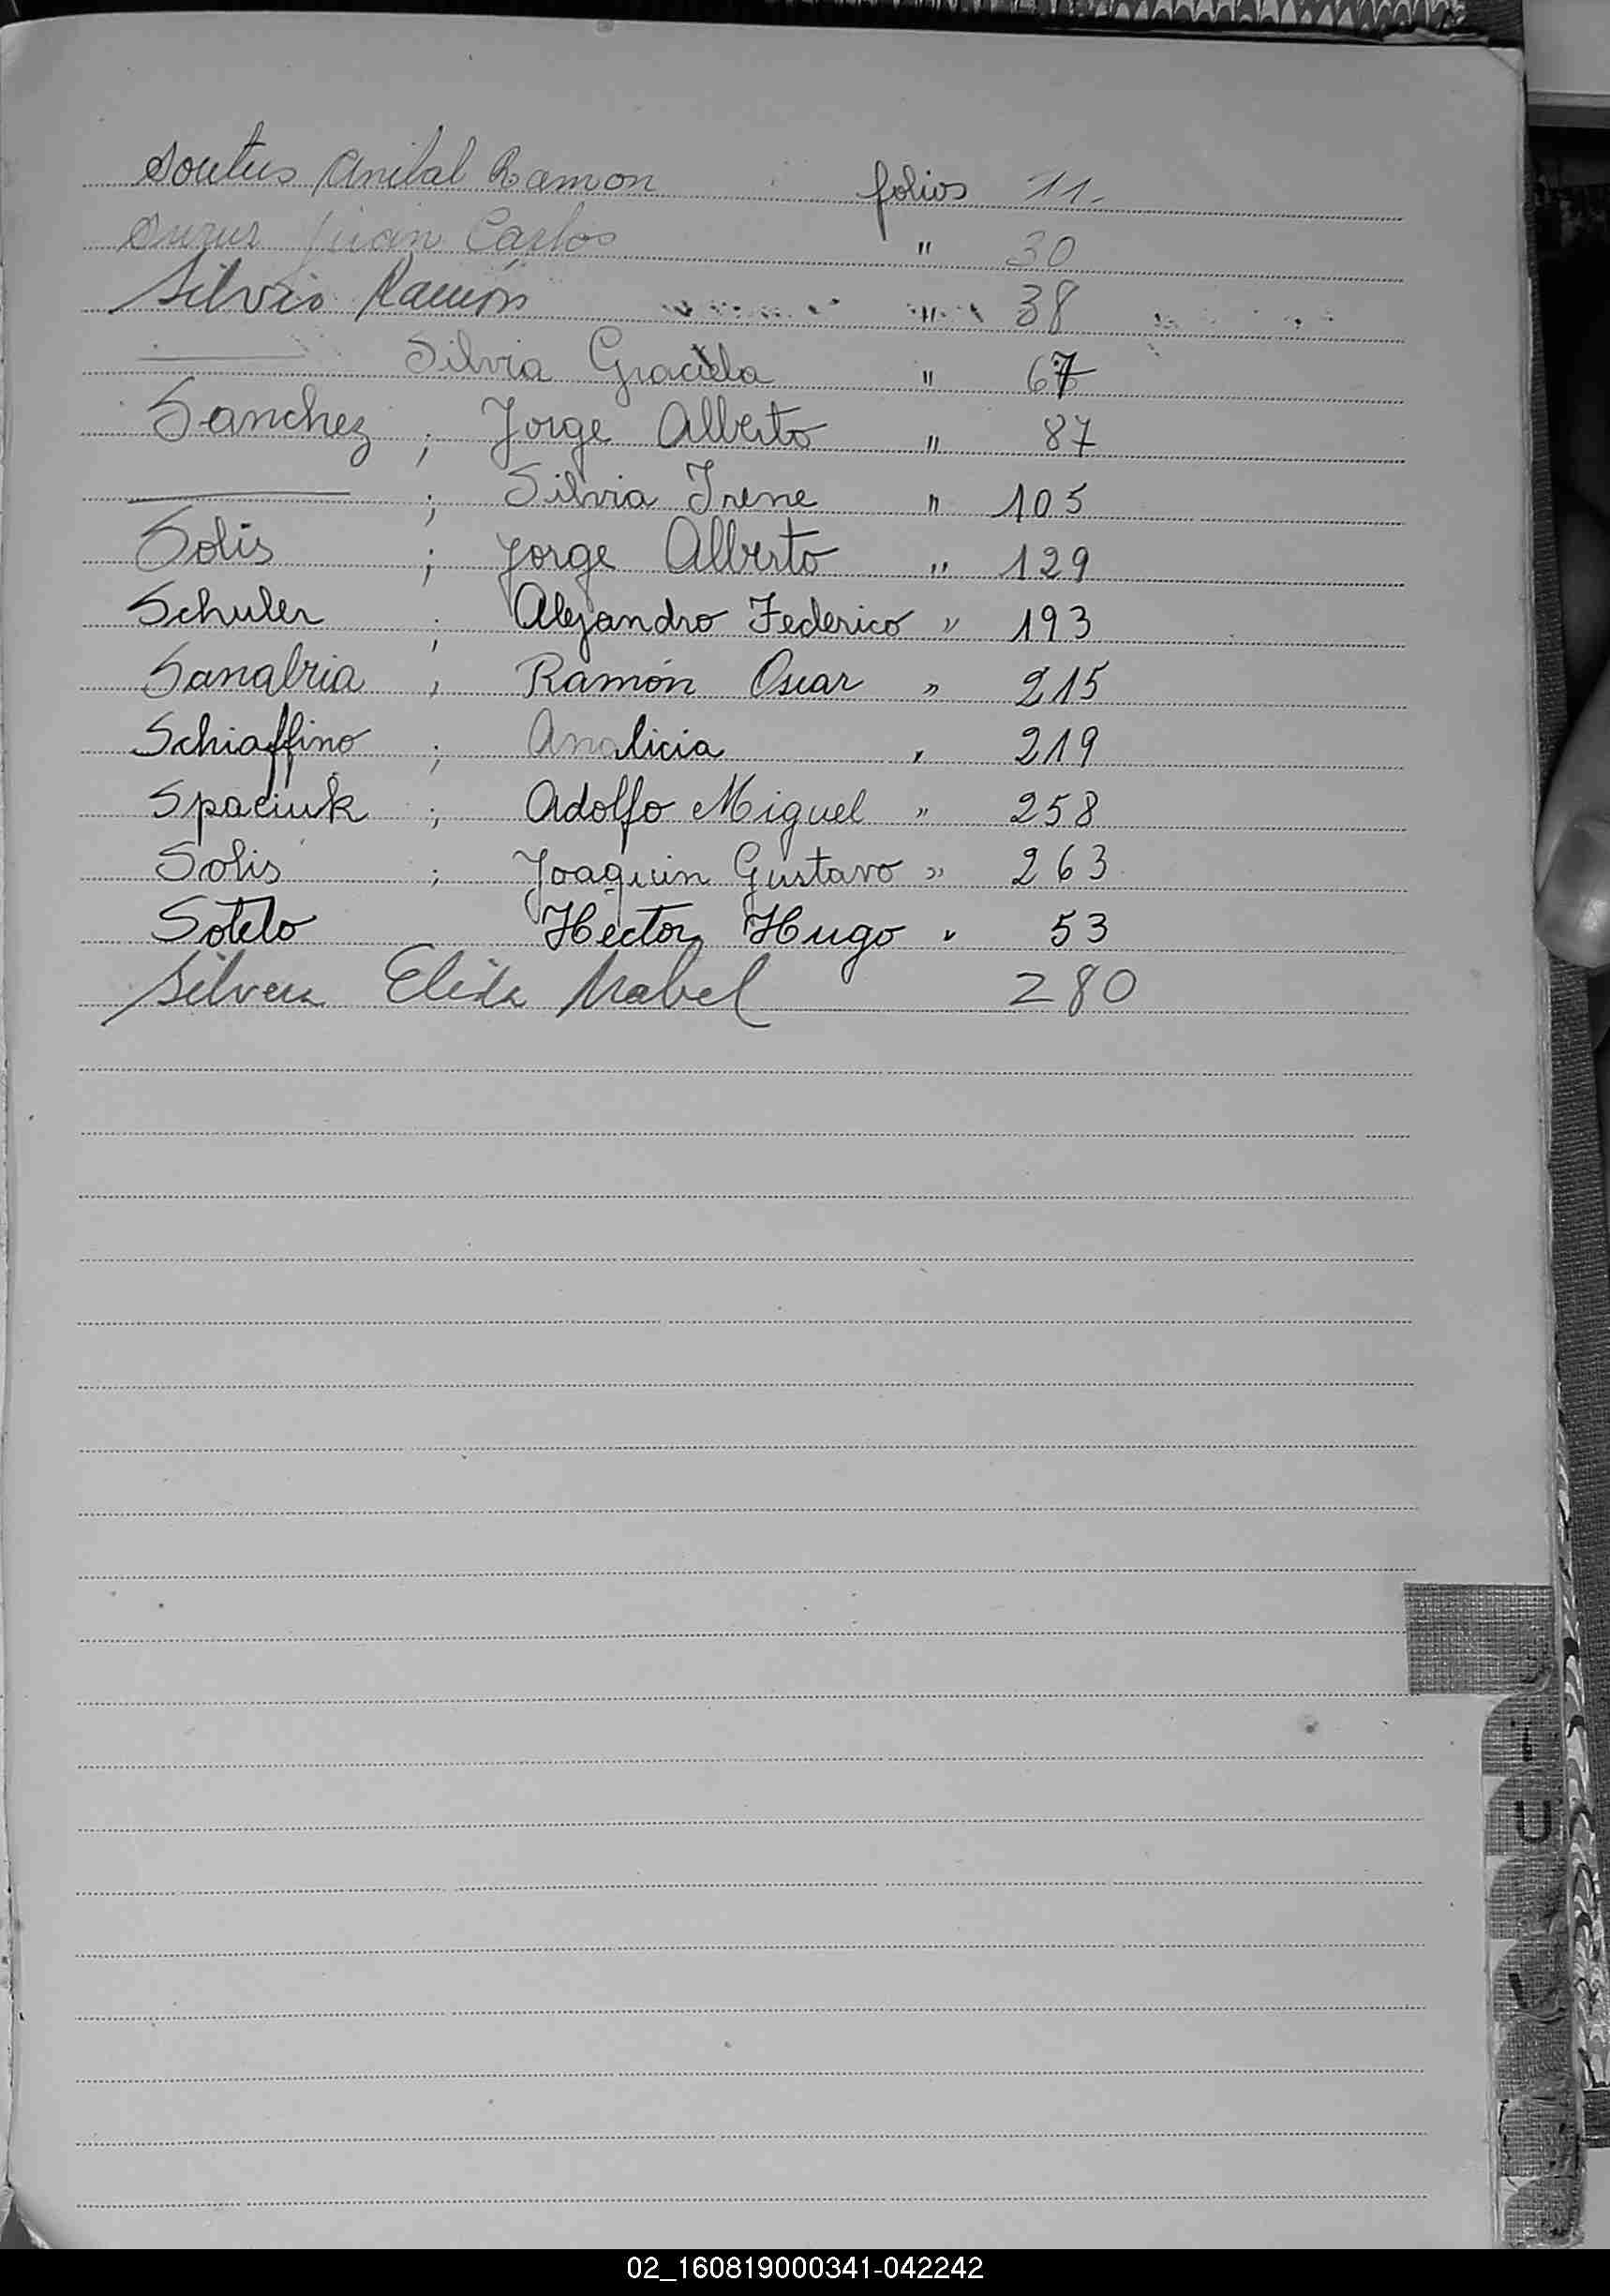 Anibal Ramon folios 11.-
Juan Carlos " 30
Silvio Ramón " 38
Silvia Graciela " 67
Sanchez ; Jorge Alberto " 87
; Silvia Irene " 105
Solis ; Jorge Alberto " 129
Schuler ; Alejandro Federico " 193
Sanabria ; Ramón Oscar " 215
Schiaffino ; Analicia " 219
Spaciuk ; Adolfo Miguel " 258
Solis ; Joaquin Gustavo " 263
Sotelo Hector Hugo " 53
Elida Mabel 280
U
02_160819000341-042242